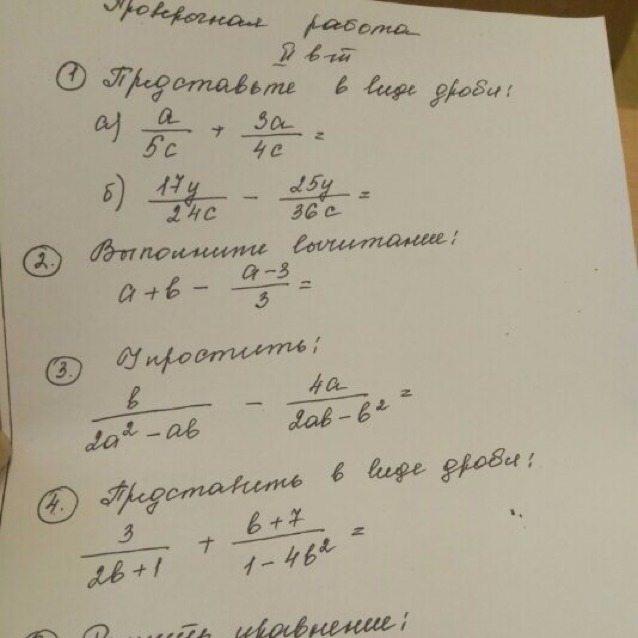 Проверочная работа
II в-т
① Представьте в виде дроби:
а) a/5c + 3a/4c =
б) 17y/24c - 25y/36c =
②. Выполните вычитание:
a + b - (a-3)/3 =
③. Упростить:
b/(2a² - ab) - 4a/(2ab - b²) =
④. Представить в виде дроби:
3/(2b+1) + (b+7)/(1-4b²) =
уравнение: